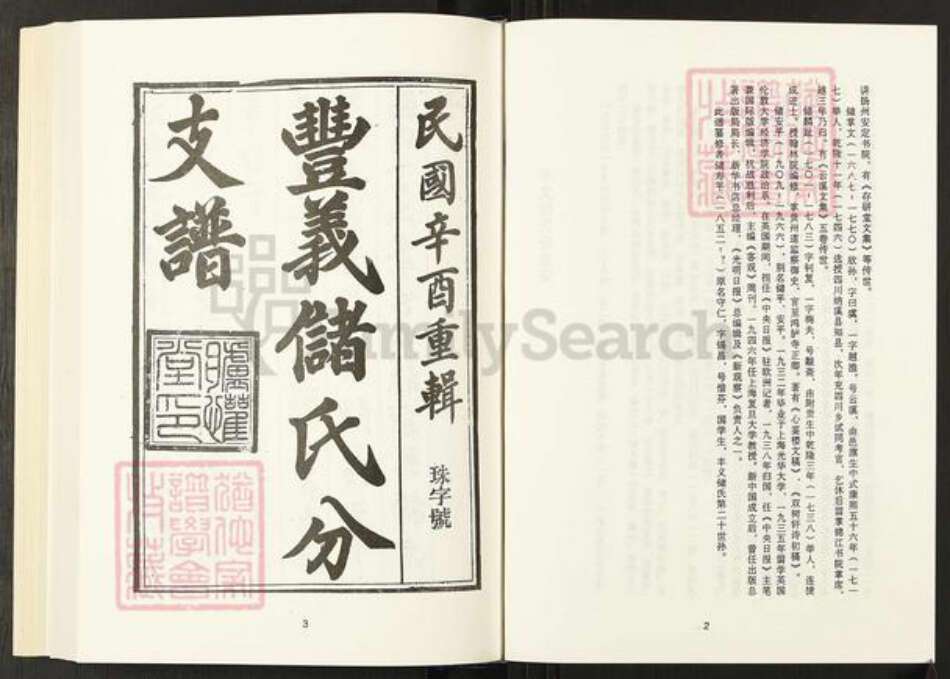 讲扬州安定书院，有《存研堂文集》等传世。
储掌文（一六八七－一七七〇）欣孙，字曰虞，一字越渔，号云溪，由邑廪生中式康熙五十六年（一七一
七）举人，乾隆十一年（一七四六）选授四川纳溪县知县，次年充四川乡试同考官，乞休后留掌锦江书院掌席，
越三年乃归，有《云溪文集》五卷传世。
储麟趾（一七〇一－一七八三）字钊复，一字梅夫，号履斋，由附贡生中乾隆三年（一七三八）举人，连捷
成进士，授翰林院编修，掌贵州道监察御史，官至鸿胪寺正卿。著有《心裳楼文稿》、《双树轩诗初稿》。
储安平（一九〇九－一九六六），别名储平、安平，一九三二年毕业于上海光华大学，一九三五年留学英国
伦敦大学经济学院政治系，在英国期间，担任《中央日报》驻欧洲记者，一九三八年归国，任《中央日报》主笔
兼国际版编辑，抗战胜利后，主编《客观》周刊，一九四六年任上海复旦大学教授，新中国成立后，曾任出版总
署出版局局长、新华书店总经理、《光明日报》总编辑及《新观察》负责人之一。
此谱纂修者储寿平（一八五二－？）原名守仁，字锡昌，号惜芬，国学生，丰义储氏第二十世孙。
2
民國辛酉重輯
珠字號
豐義儲氏分
支譜
堂印
3
FamilySearch